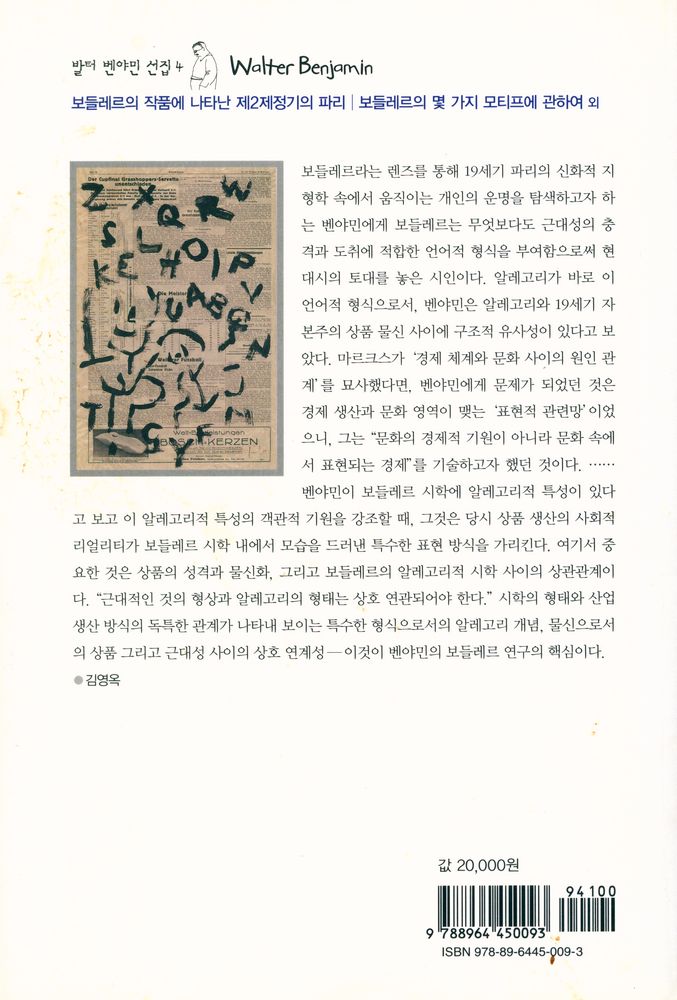 발터 벤야민 선집 4 Walter Benjamin
보들레르의 작품에 나타난 제2제정기의 파리 | 보들레르의 몇 가지 모티프에 관하여 외
Der Cupfinal Grasshoppers-Servette
unentschieden
Z X Q R W
S L H O I P
K E
Y U A B G V
N
Die Meister
Fussball
BOSCH-KERZEN
보들레르라는 렌즈를 통해 19세기 파리의 신화적 지
형학 속에서 움직이는 개인의 운명을 탐색하고자 하
는 벤야민에게 보들레르는 무엇보다도 근대성의 충
격과 도취에 적합한 언어적 형식을 부여함으로써 현
대시의 토대를 놓은 시인이다. 알레고리가 바로 이
언어적 형식으로서, 벤야민은 알레고리와 19세기 자
본주의 상품 물신 사이에 구조적 유사성이 있다고 보
았다. 마르크스가 ‘경제 체계와 문화 사이의 원인 관
계’를 묘사했다면, 벤야민에게 문제가 되었던 것은
경제 생산과 문화 영역이 맺는 ‘표현적 관련망’이었
으니, 그는 “문화의 경제적 기원이 아니라 문화 속에
서 표현되는 경제”를 기술하고자 했던 것이다. ……
벤야민이 보들레르 시학에 알레고리적 특성이 있다
고 보고 이 알레고리적 특성의 객관적 기원을 강조할 때, 그것은 당시 상품 생산의 사회적
리얼리티가 보들레르 시학 내에서 모습을 드러낸 특수한 표현 방식을 가리킨다. 여기서 중
요한 것은 상품의 성격과 물신화, 그리고 보들레르의 알레고리적 시학 사이의 상관관계이
다. “근대적인 것의 형상과 알레고리의 형태는 상호 연관되어야 한다.” 시학의 형태와 산업
생산 방식의 독특한 관계가 나타내 보이는 특수한 형식으로서의 알레고리 개념, 물신으로서
의 상품 그리고 근대성 사이의 상호 연계성—이것이 벤야민의 보들레르 연구의 핵심이다.
● 김영옥
값 20,000원
94100
9 788964 450093
ISBN 978-89-6445-009-3